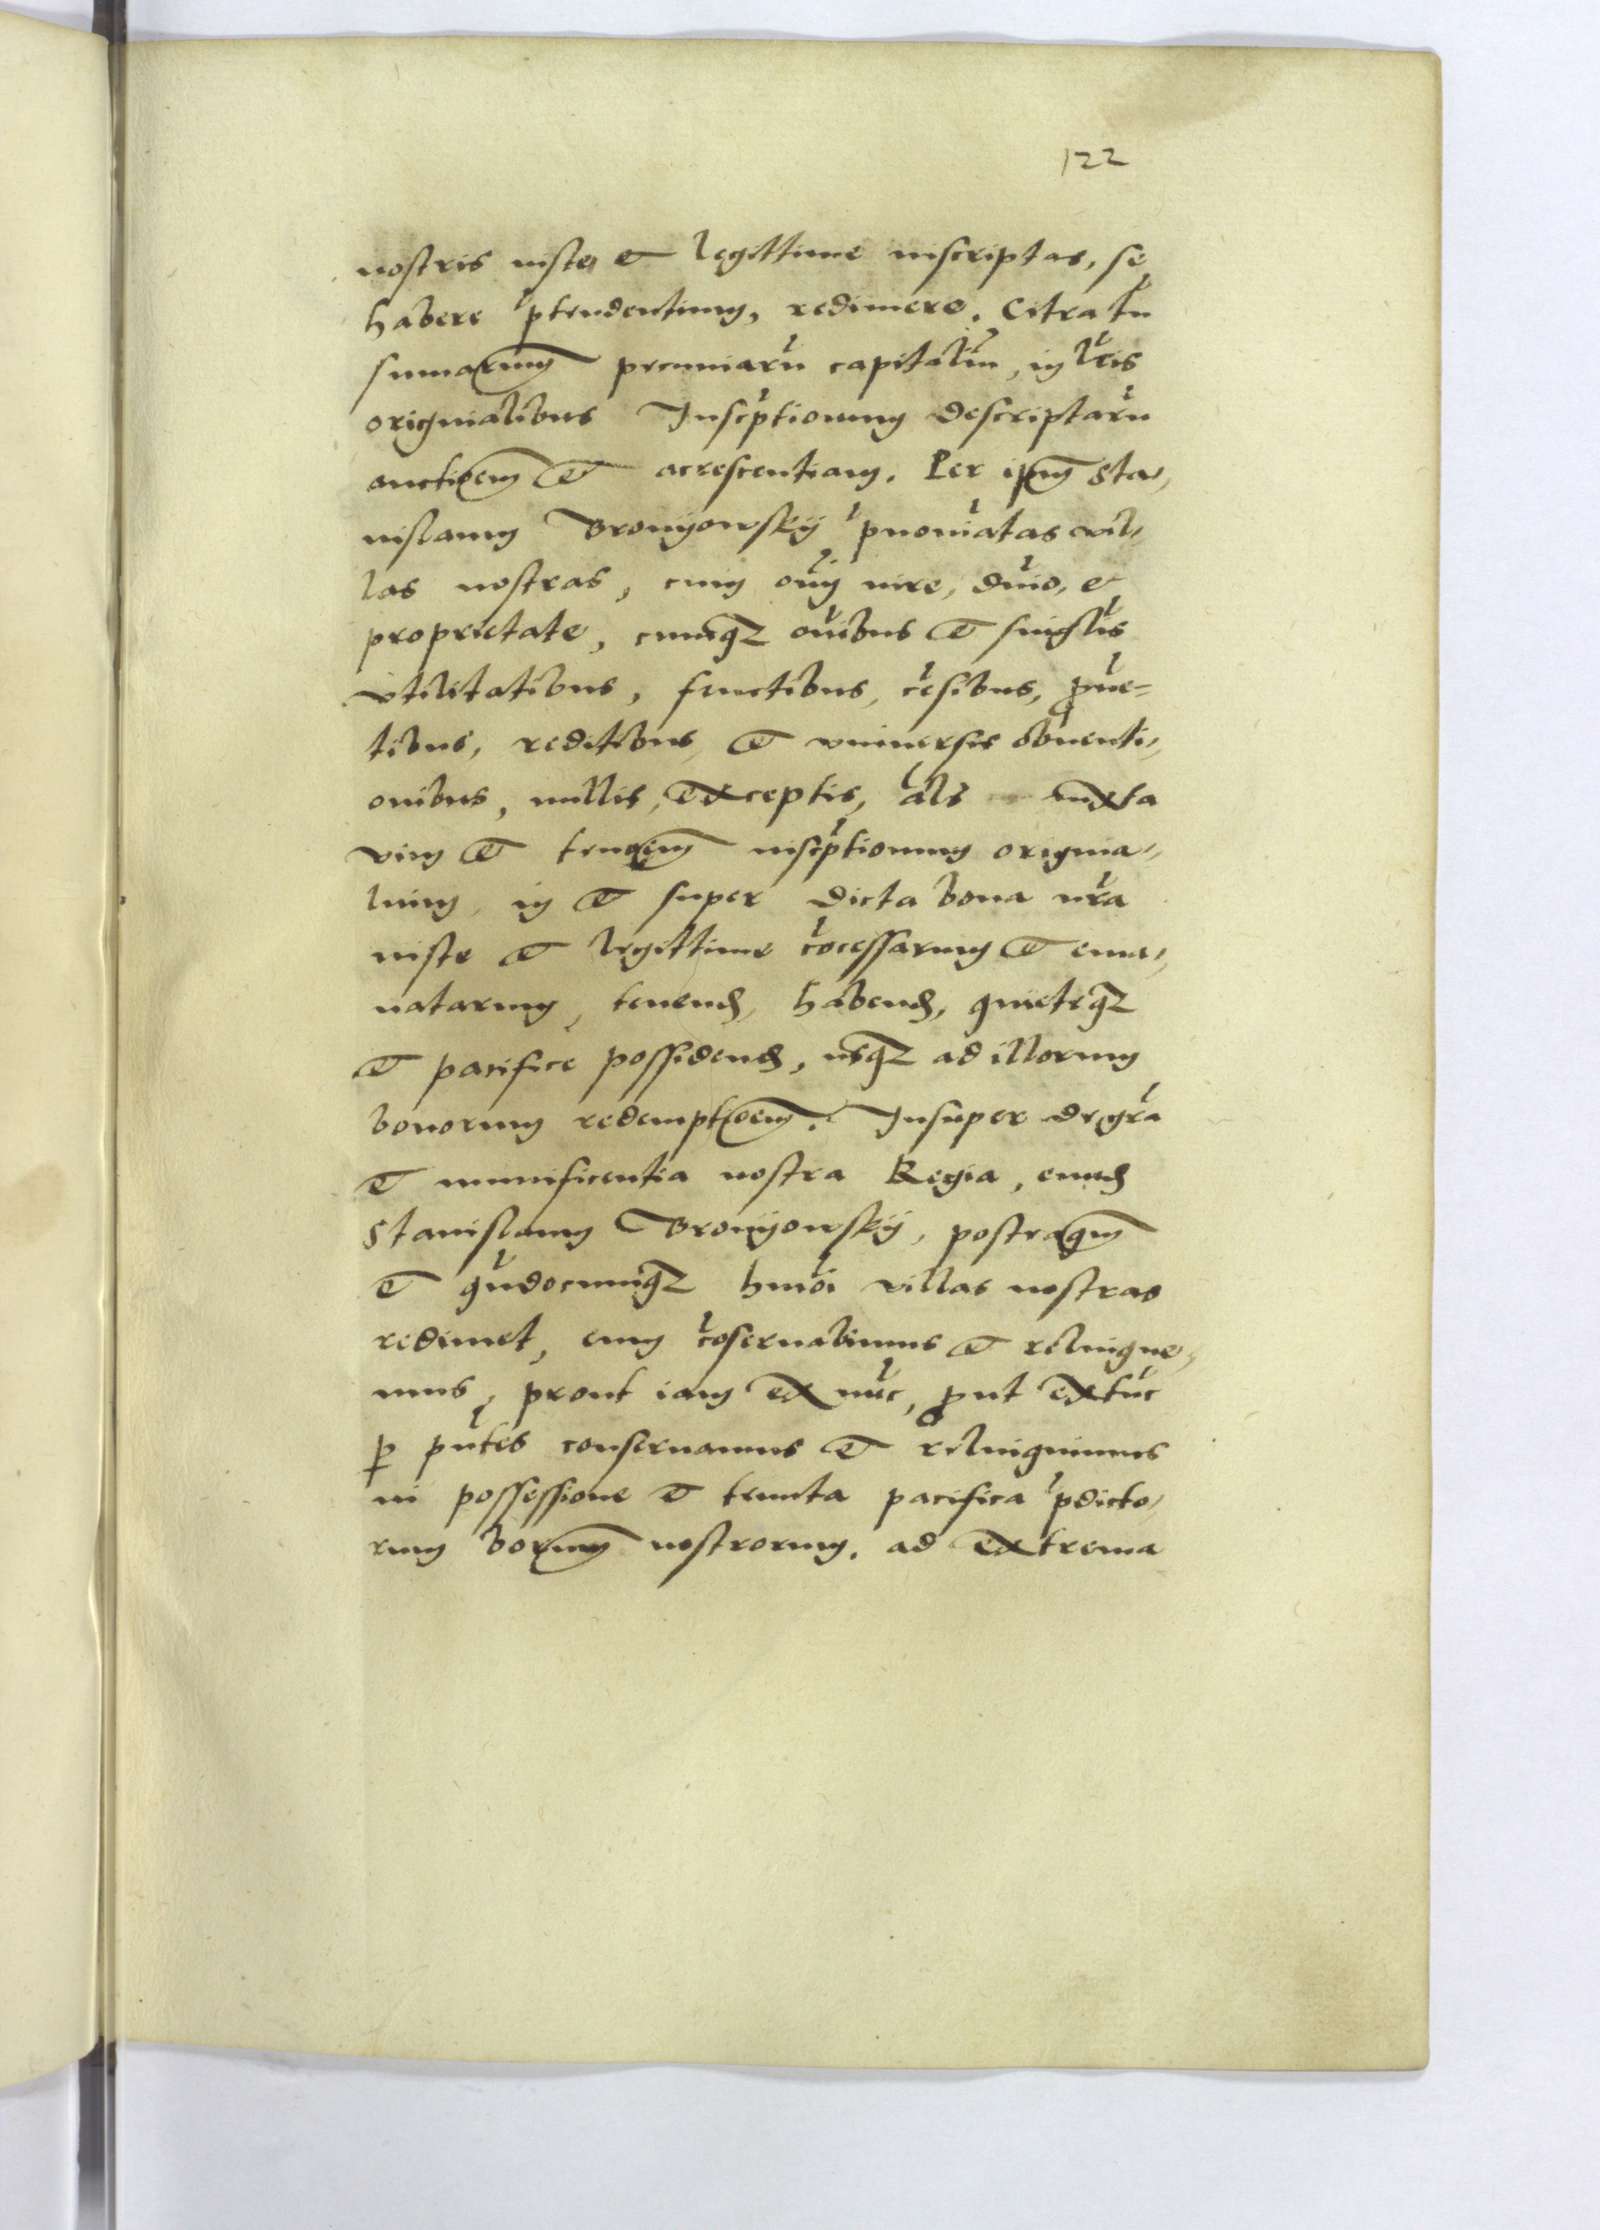 122
nostris iuste et legittime inscriptas, se
habere p̃tendentium, redimere. Citra tñ
sumarum pecuniarũ capitaliũ, in lr̃is
originalibus Inscp̃tionum descriptarũ
auctioem et acrescentiam. Per ipm̃ Sta,,
nislaum Bronÿowskÿ p̃noĩatas vil,,
las nostras, cum oĩ iure, dnĩo, et
proprietate, cumq₃ oĩbus et singlĩs
vtilitatibus, fructibus, cẽsibus, ꝓuẽ=
tibus, reditibus, et vniuersis obuenti,,
onibus, nullis, exceptis, al̃s iuxta
vim et tenoem inscp̃tionum origina,,
lium, in et super dicta bona nr̃a
iuste et legittime cõcessarum et ema,,
natarum, tenend, habend, quieteq₃
et pacifice possidend, usq₃ ad illorum
bonorum redemptioem. Insuper de gr̃a
et munificentia nostra Regia, eund
Stanislaum Bronÿowskÿ, postraquam
et qũdocumq₃ hmõi villas nostras
redimet, eum cõseruabimus et relinque,,
mus, prout iam ex nũc, ꝓut extũc
ꝑ pñtes conseruamus et relinquimus
in possessione et tenuta pacifica p̃dicto,,
rum borum nostrorum. ad extrema